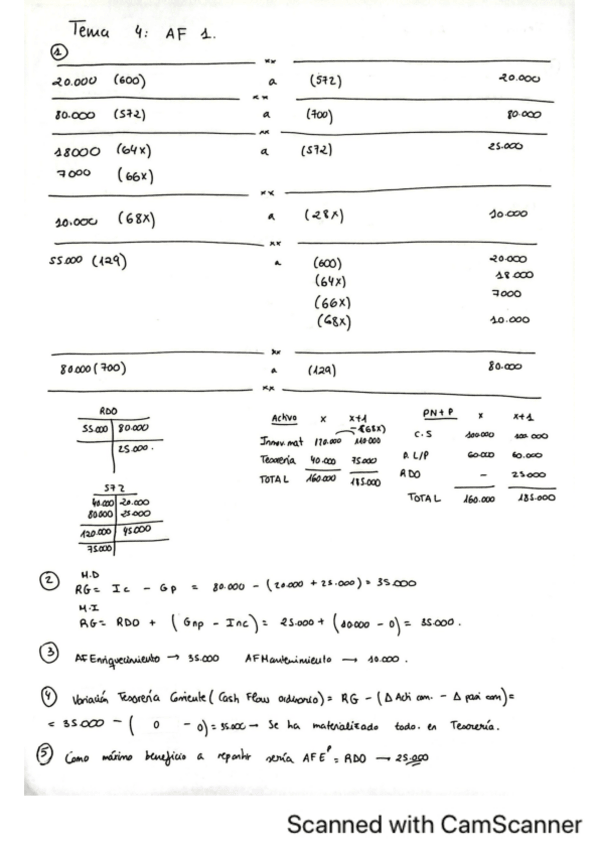 Tema 4: AF 1.
①
xx
20.000 (600) a (572) 20.000
xx
80.000 (572) a (700) 80.000
xx
18000 (64x) a (572) 25.000
7000 (66x)
xx
10.000 (68x) a (28x) 10.000
xx
55.000 (129) a (600) 20.000
(64x) 18.000
(66x) 7000
(68x) 10.000
xx
80.000 (700) a (129) 80.000
xx
RDO
55.000 80.000
25.000.
572
40.000 20.000
80000 25.000
120.000 45000
75000
Activo x x+1
-(68x)
Inmov.mat 120.000 110.000
Tesorería 40.000 75000
TOTAL 160.000 185.000
PN+P x x+1
C.S 100.000 100.000
P. L/P 60.000 60.000
RDO - 25000
TOTAL 160.000 185.000
② M.D
RG= Ic - Gp = 80.000 - (20.000 + 25.000) = 35.000
M.I
RG= RDO + (Gnp - Inc) = 25.000 + (10.000 - 0) = 35.000.
③ AFEnriquecimiento → 35.000 AFMantenimiento → 10.000.
④ Variación Tesorería Corriente (Cash Flow ordinario) = RG - (Δ Acti com. - Δ pasi com) =
= 35.000 - ( 0 - 0) = 35.000 → Se ha materializado todo. en Tesorería.
⑤ Como máximo beneficio a repartir sería AFE = RDO → 25.000
Scanned with CamScanner